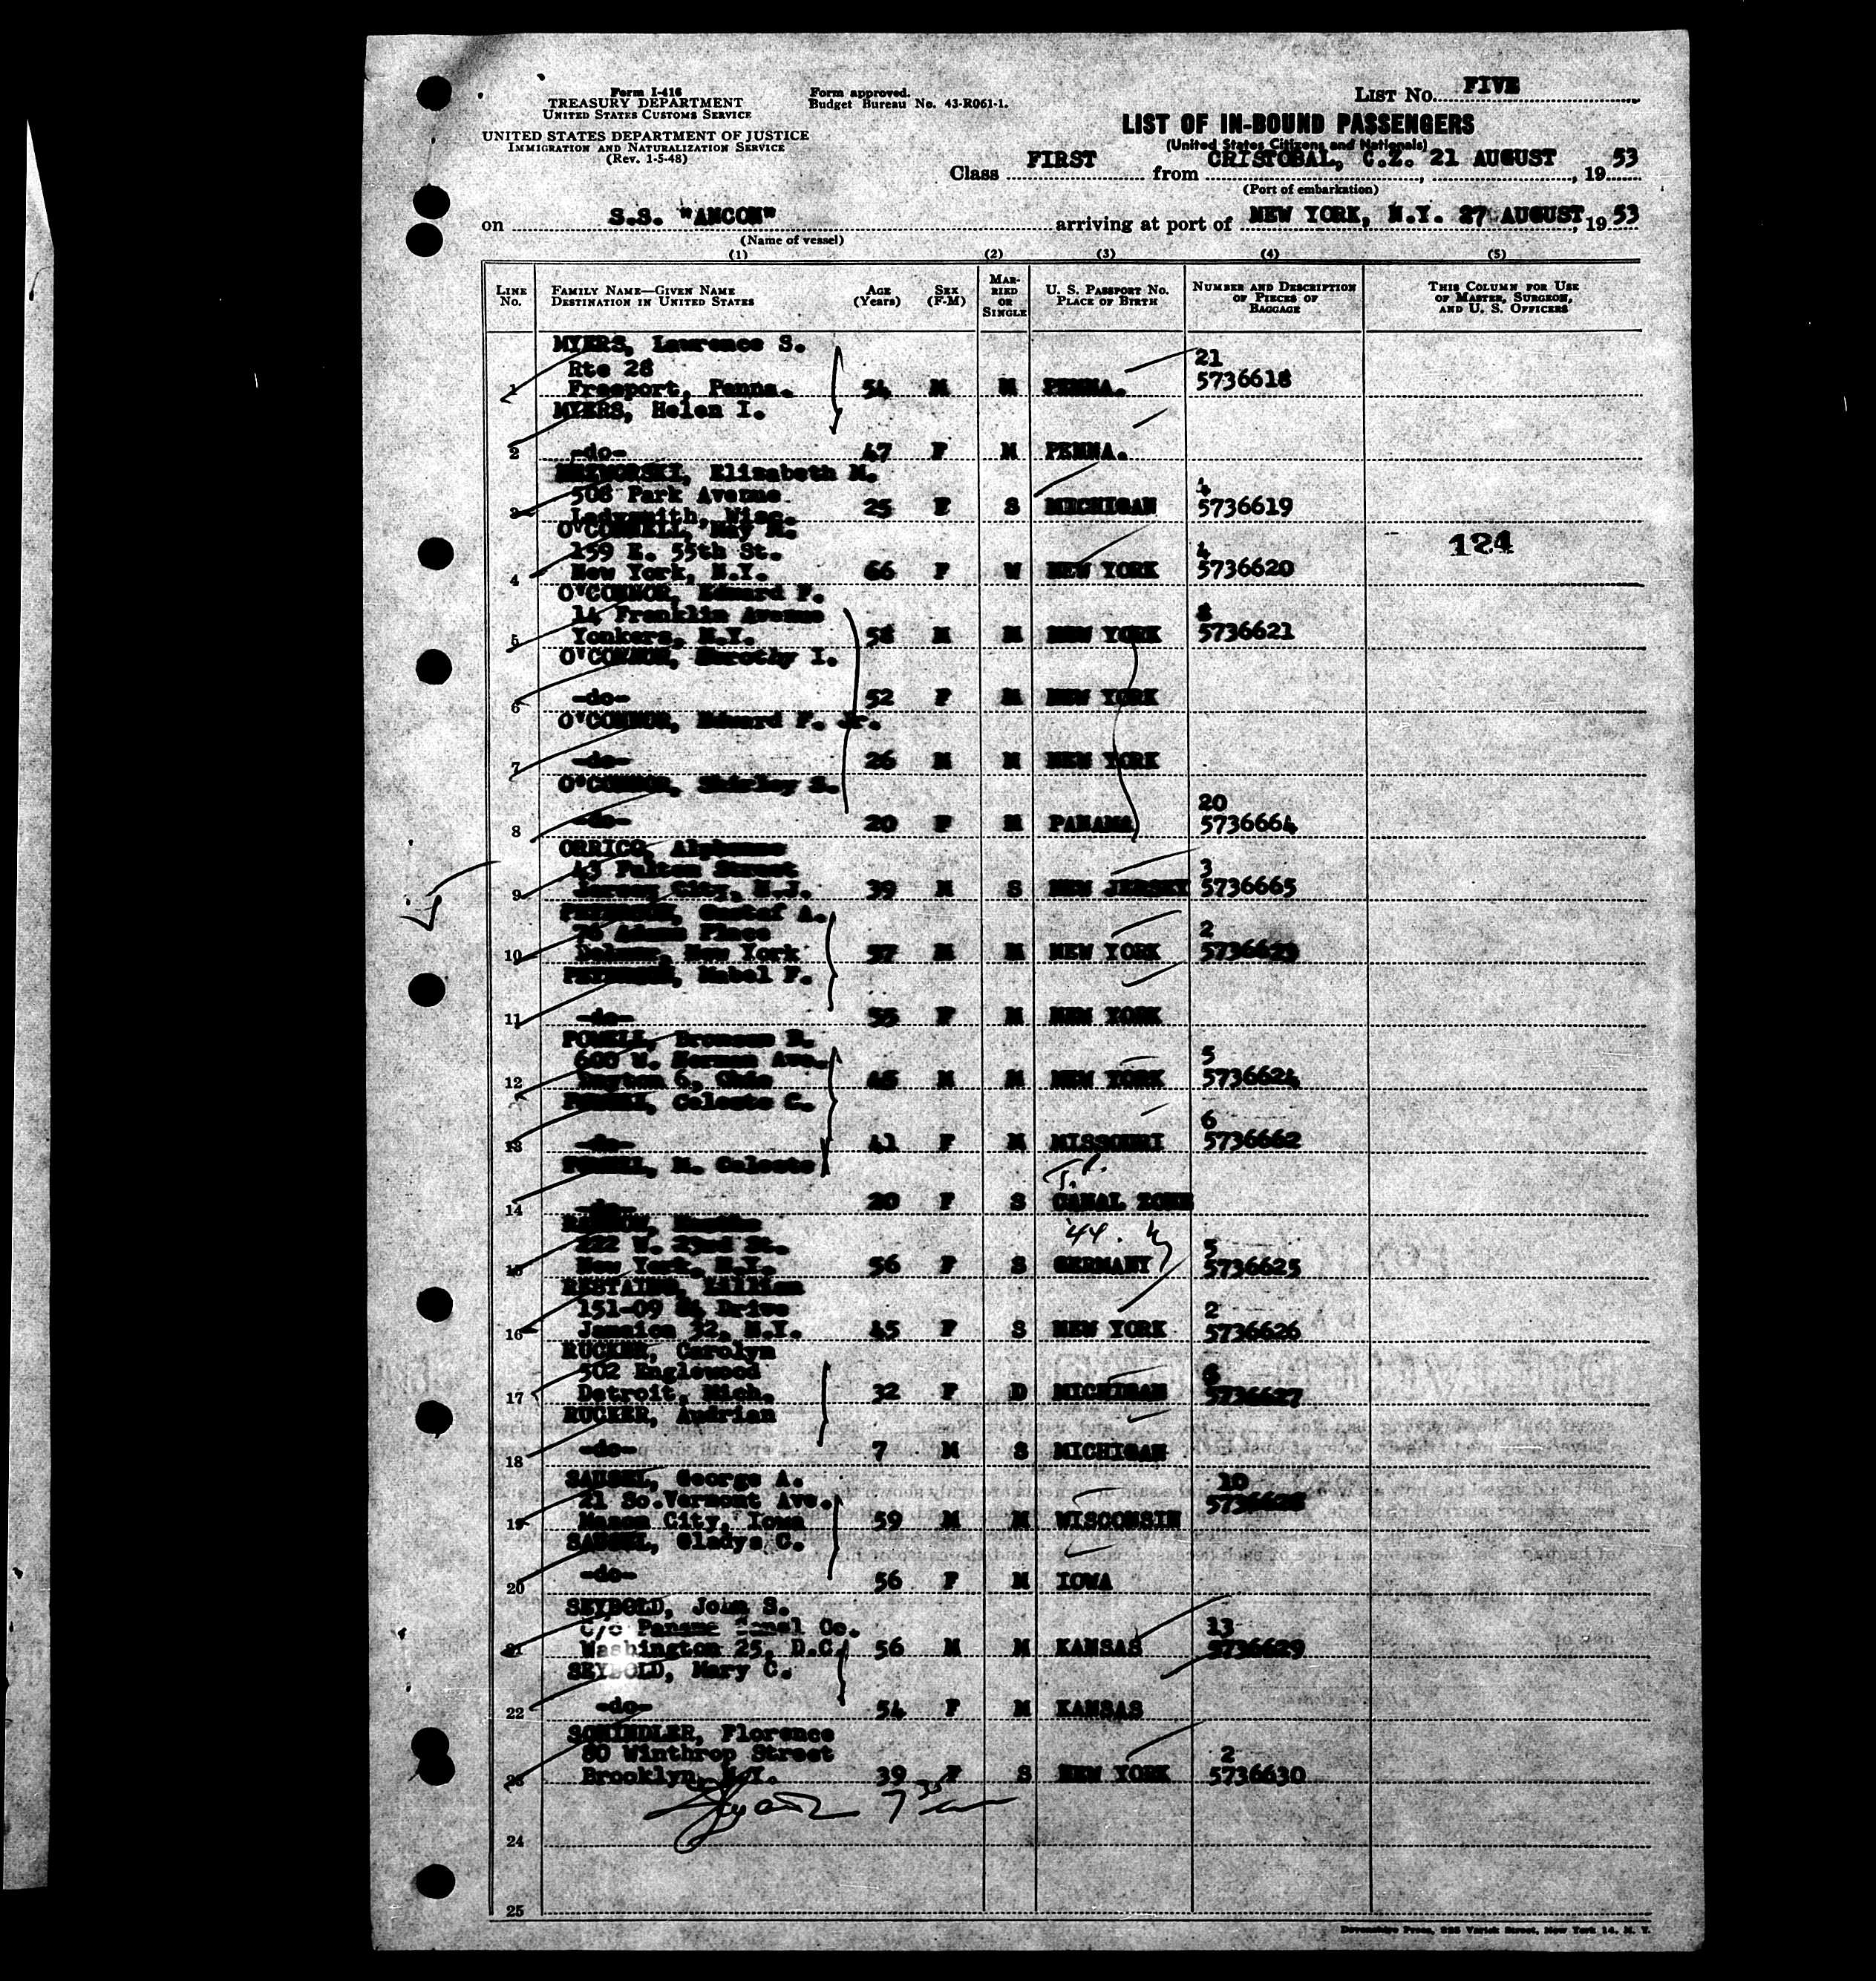 Form I-416
TREASURY DEPARTMENT
UNITED STATES CUSTOMS SERVICE
UNITED STATES DEPARTMENT OF JUSTICE
IMMIGRATION AND NATURALIZATION SERVICE
(Rev. 1-5-48)
Form approved.
Budget Bureau No. 43-R061-1.
LIST NO. FIVE
LIST OF IN-BOUND PASSENGERS
(United States Citizens and Nationals)
Class FIRST from CRISTOBAL, C.Z. 21 AUGUST, 19 53
(Port of embarkation)
on S.S. "ANCON" arriving at port of NEW YORK, N.Y. 27 AUGUST, 19 53
(Name of vessel)
(1) (2) (3) (4) (5)
LINE NO. FAMILY NAME—GIVEN NAME DESTINATION IN UNITED STATES AGE (Years) SEX (F-M) MARRIED OR SINGLE U. S. PASSPORT NO. PLACE OF BIRTH NUMBER AND DESCRIPTION OF PIECES OF BAGGAGE THIS COLUMN FOR USE OF MASTER, SURGEON, AND U. S. OFFICERS
MYERS, Lawrence S.
Rte 28 21
1 Freeport, Penna. 54 M M PENNA. 5736618
MYERS, Helen I.
2 -do- 47 F M PENNA.
Elizabeth M.
508 Park Avenue 4
3 Ladysmith, Wisc. 25 F S MICHIGAN 5736619
O'CONNELL, May
159 E. 55th St. 4 124
4 New York, N.Y. 66 F W NEW YORK 5736620
O'CONNOR, Edward F.
14 Franklin Avenue 8
5 Yonkers, N.Y. 58 M M NEW YORK 5736621
O'CONNOR, Dorothy I.
6 -do- 52 F M NEW YORK
O'CONNOR, Edward F. Jr.
7 -do- 26 M M NEW YORK
O'CONNOR, Shirley S.
20
8 -do- 20 F M PANAMA 5736664
ORRICO, Alphonse
43 Fulton Street 3
9 Jersey City, N.J. 39 M S NEW JERSEY 5736665
Gustaf A.
76 Adams Place 2
10 New York 57 M M NEW YORK
Mabel F.
11 -do- 55 F M NEW YORK
POWELL, R.
600 W. Norman Ave. 5
12 Dayton 6, Ohio 45 M M NEW YORK 5736624
POWELL, Celeste C.
6
13 -do- 41 F M MISSOURI 5736662
POWELL, M. Celeste
14 -do- 20 F S CANAL ZONE
'44.
222 W. 23rd St. 5
15 New York, N.Y. 56 F S GERMANY 5736625
RESTAINO, Lillian
151-09 84 Drive 2
16 Jamaica 32, N.Y. 45 F S NEW YORK 5736626
RUCKER, Carolyn
502 Englewood 6
17 Detroit, Mich. 32 F D MICHIGAN 5736627
RUCKER, Audrian
18 -do- 7 M S MICHIGAN
George A. 10
21 So.Vermont Ave. 5736628
19 Mason City, Iowa 59 M M WISCONSIN
Gladys C.
20 -do- 56 F M IOWA
SEYBOLD, John S.
C/o Panama Canal Co. 13
21 Washington 25, D.C. 56 M M KANSAS 5736629
SEYBOLD, Mary C.
22 -do- 54 F M KANSAS
SCHINDLER, Florence
80 Winthrop Street 2
23 Brooklyn, N.Y. 39 F S NEW YORK 5736630
24
25
Devonshire Press, 225 Varick Street, New York 14, N. Y.